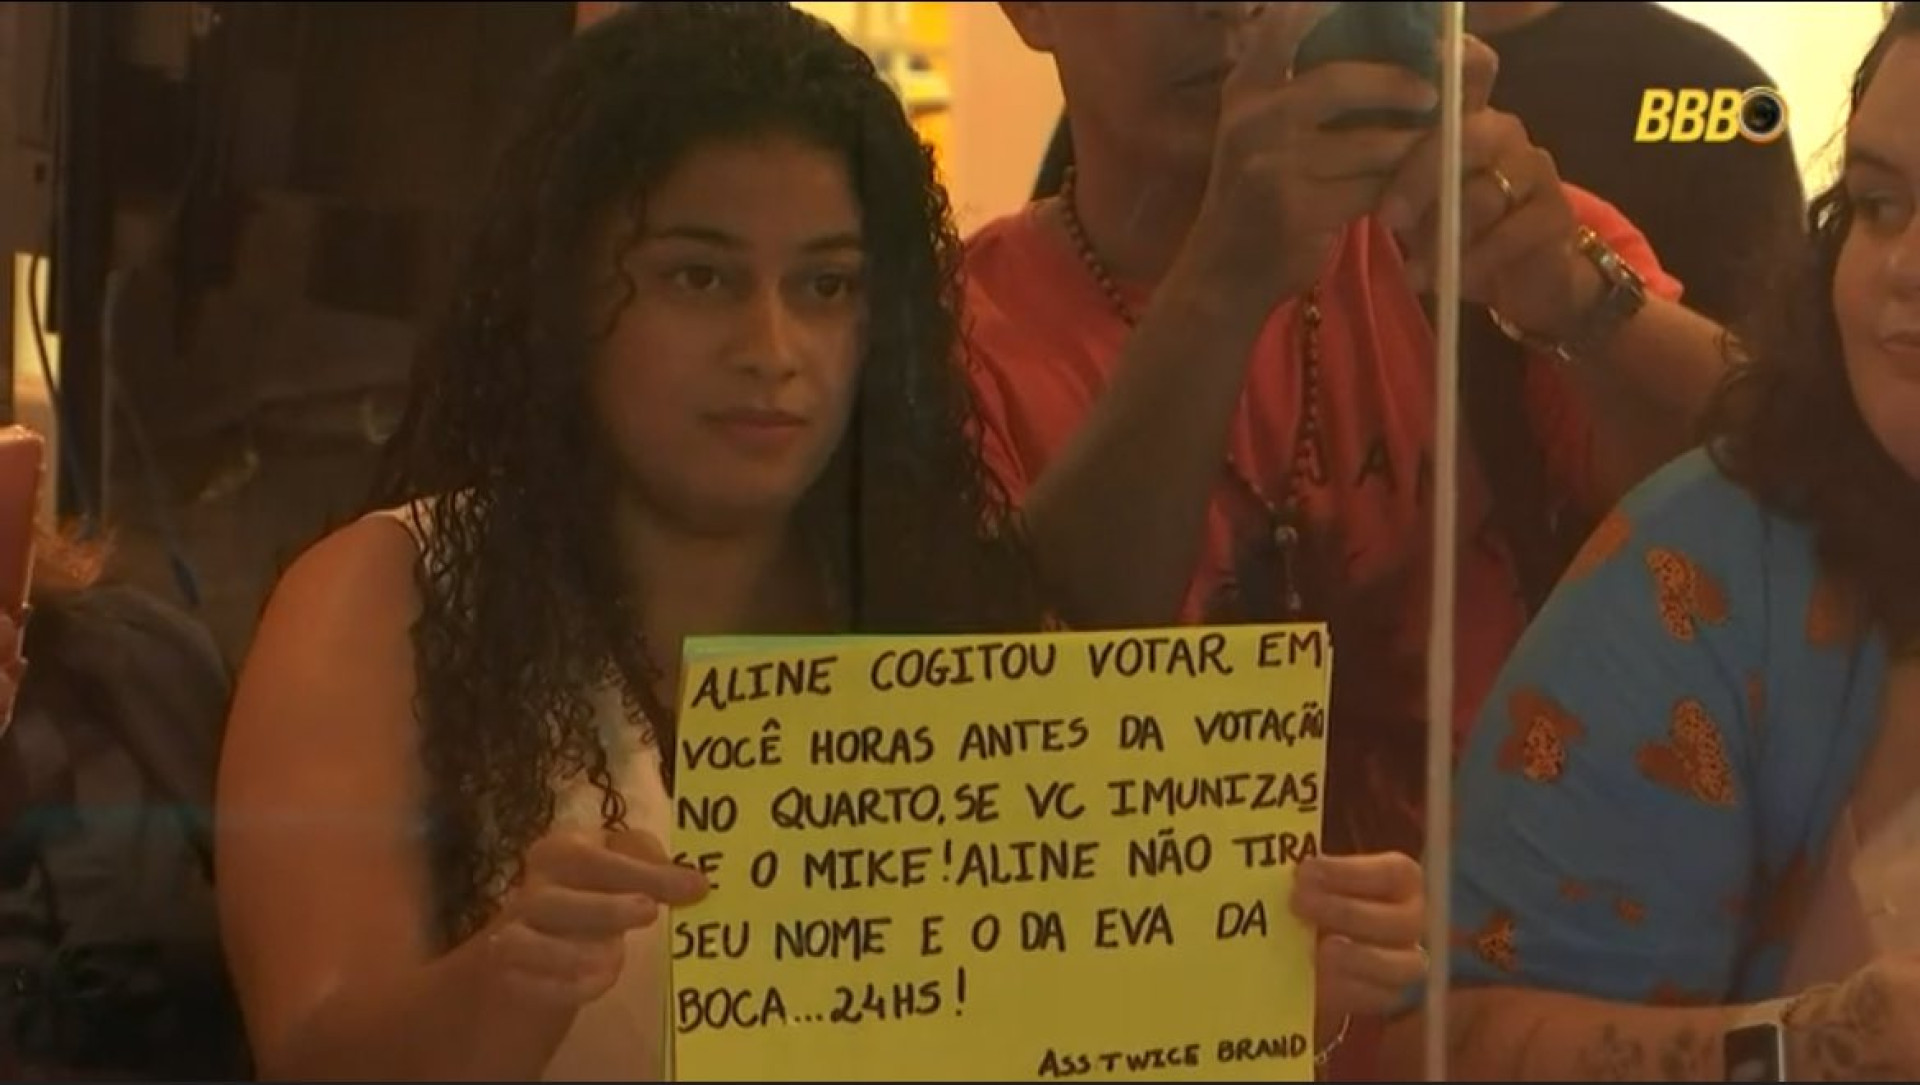 BBB
ALINE COGITOU VOTAR EM
VOCÊ HORAS ANTES DA VOTAÇÃO
NO QUARTO, SE VC IMUNIZAS
SE O MIKE! ALINE NÃO TIRA
SEU NOME E O DA EVA DA
BOCA... 24HS!
ASS TWICE BRAND